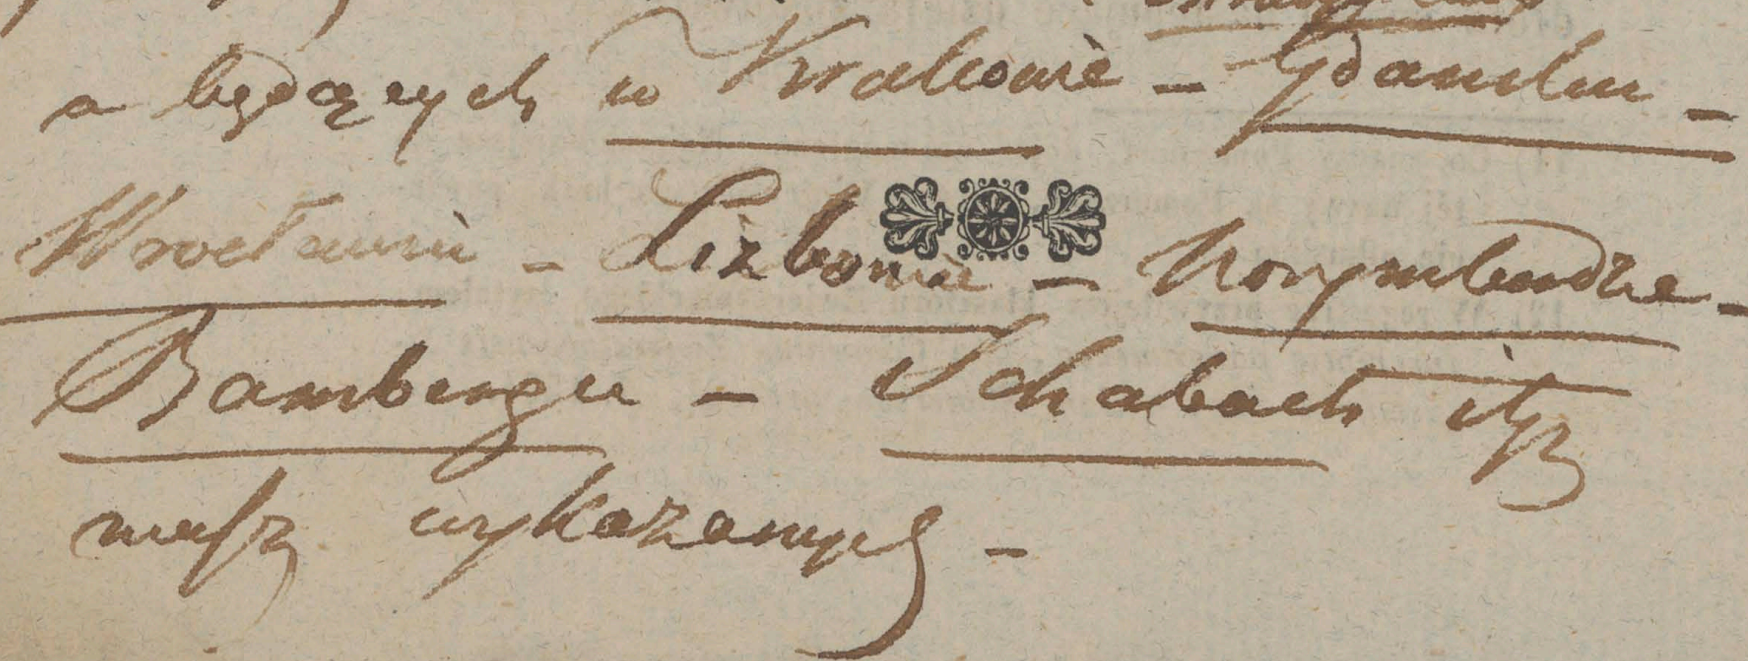 a będących w Krakowie – Gdańsku –
Wrocławiu – Lizbonie – Norymberdze –
Bambergu – Schabach itp
wykazanych –